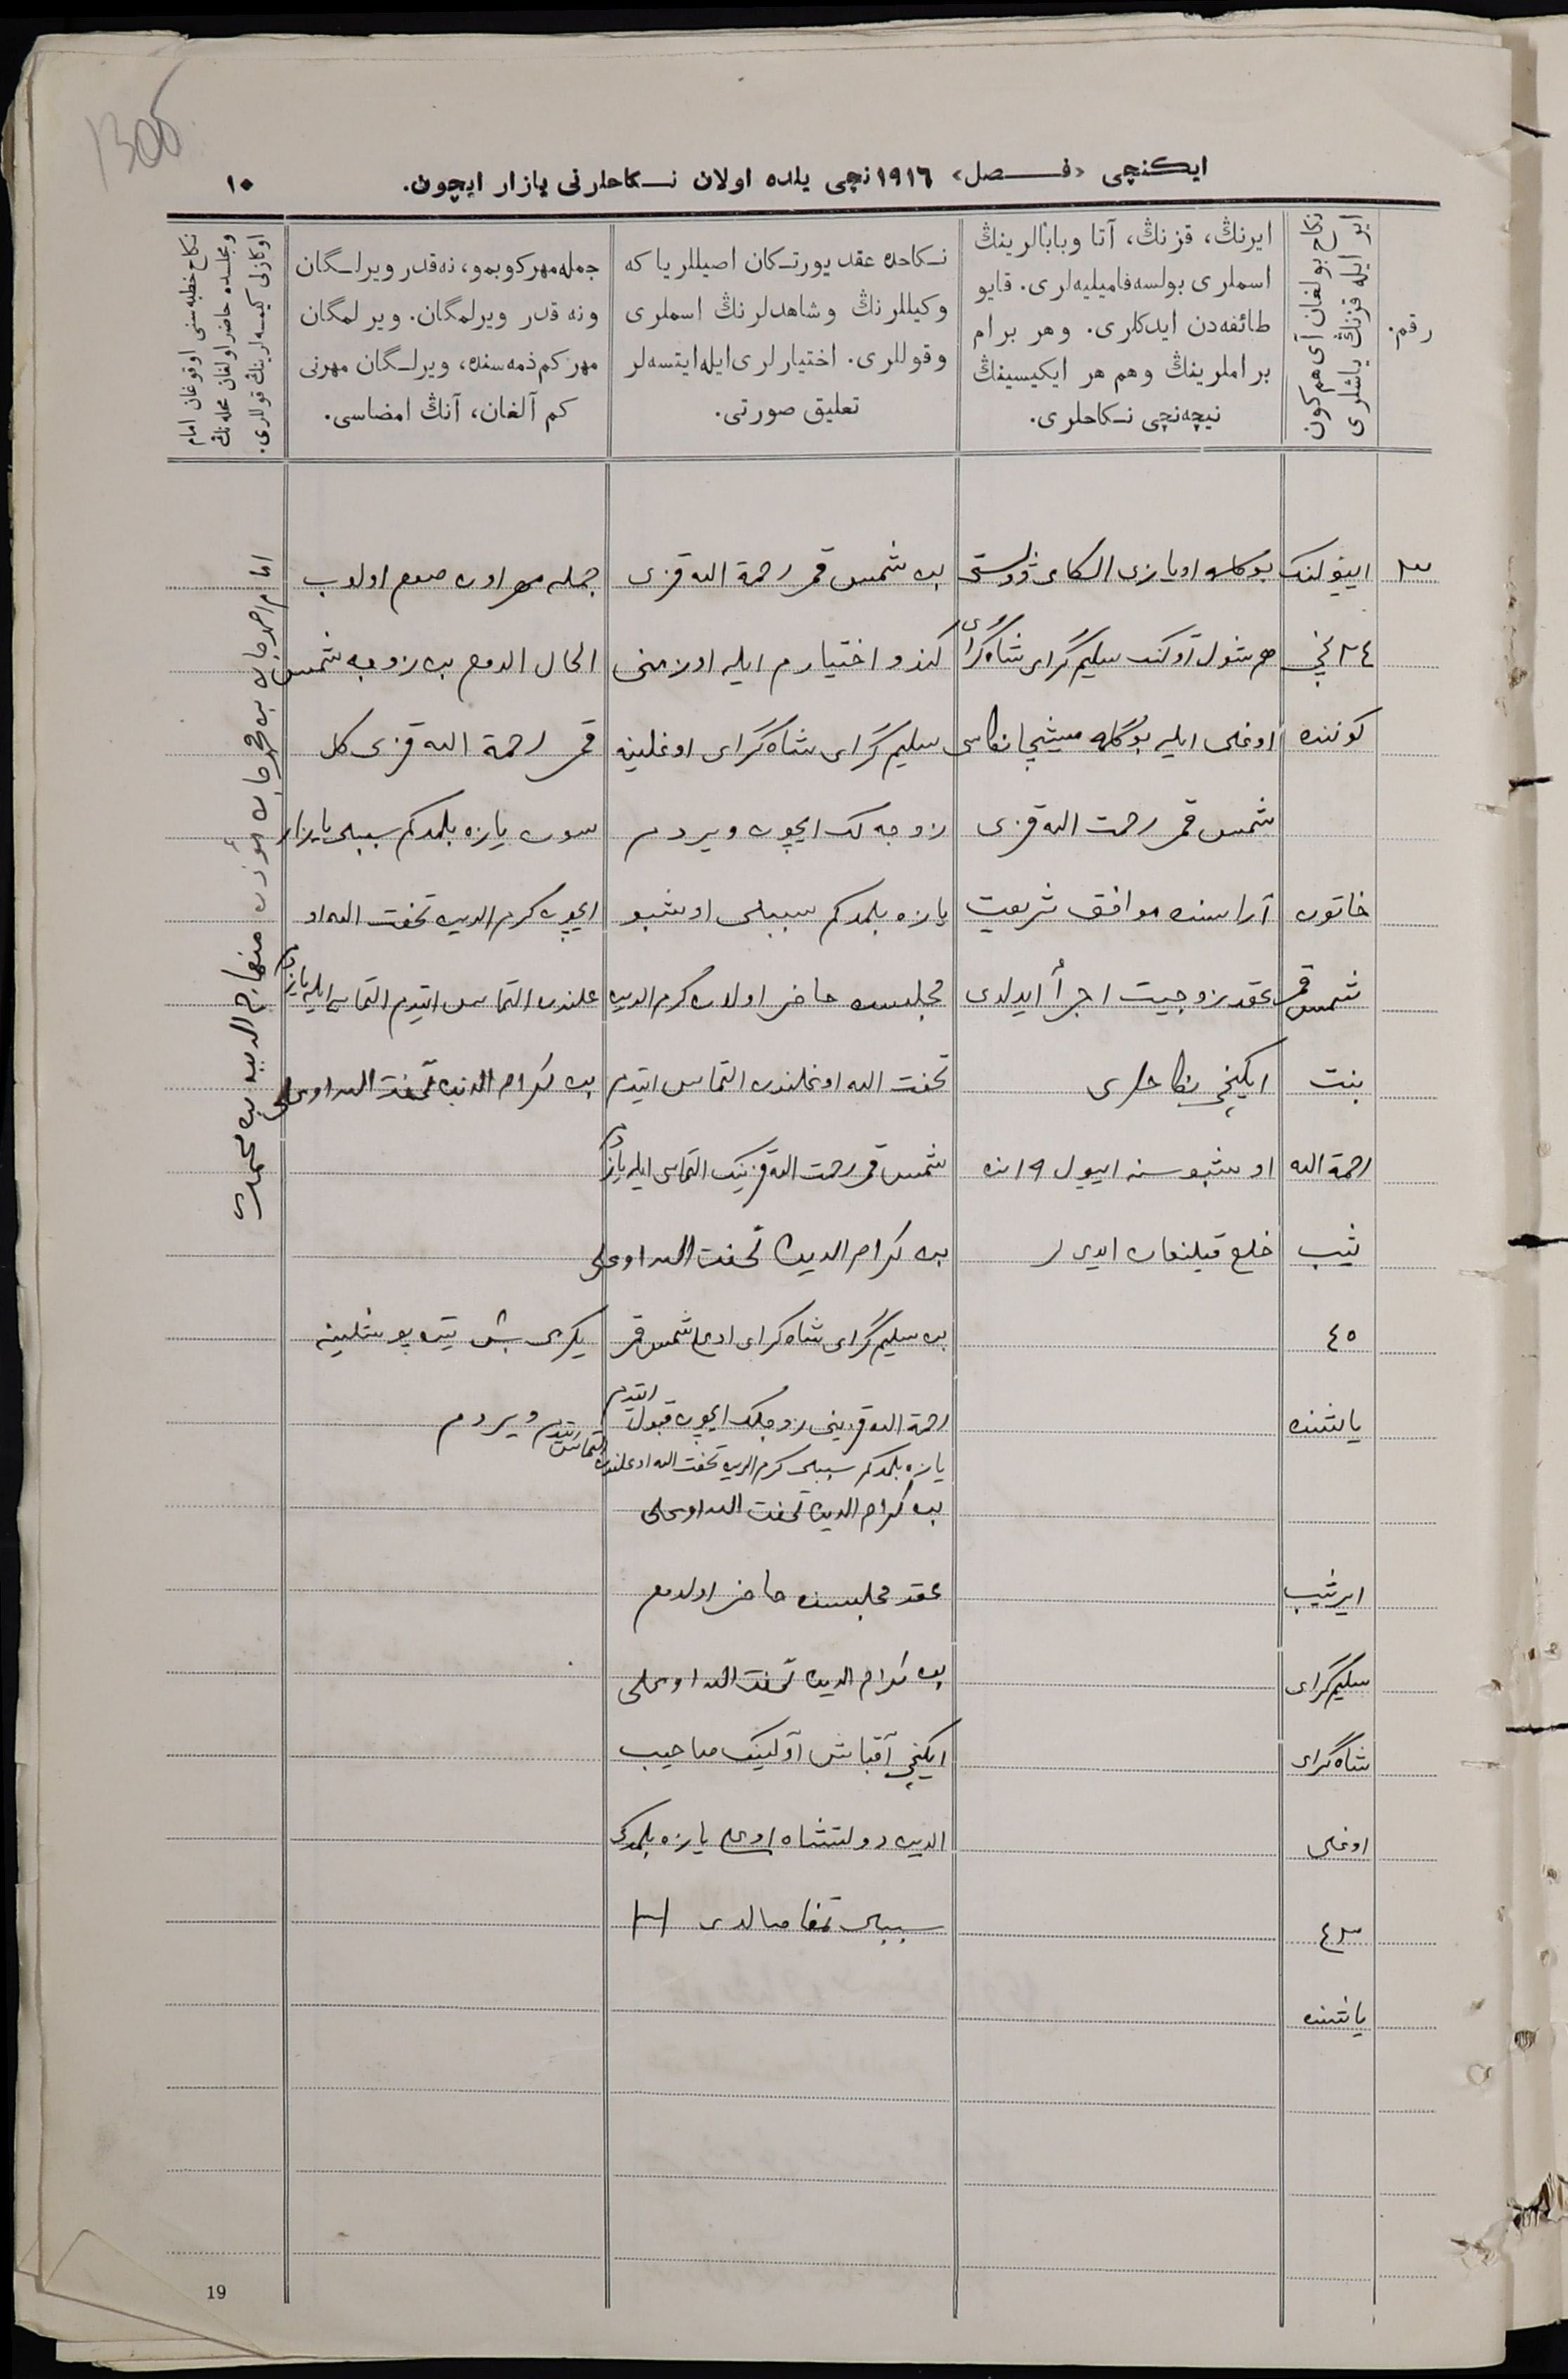 1306
ایكنچی «فصل» ١٩١٦ نچی یلده اولان نكاحلرنی یازار ایچون.
١٠
رقم.
نكاح بولغان آی هم كون
ایر ایله قزنڭ یاشلری
ایرنڭ، قزنڭ، آتا وبابالرینڭ
اسملری بولسه فامیلیه‌لری. قایو
طائفه‌دن ایدكلری. وهر برام
براملرینڭ وهم هر ایكیسینڭ
نیچه‌نچی نكاحلری.
نكاحده عقد یورتكان اصیللر یا كه
وكیللرنڭ وشاهدلرنڭ اسملری
وقوللری. اختیارلری ایله ایتسه‌لر
تعلیق صورتی.
جمله مهر كوبمو، نه قدر ویرلگان
ونه قدر ویرلمگان. ویرلمگان
مهر كم ذمه سنده، ویرلگان مهرنی
كم آلغان، آنڭ امضاسی.
نكاح خطبه سنی اوقوغان امام
ومجلسده حاضر اولغان محله نڭ
اوكازلی كیسه لرینڭ قوللری.
٣
اییولنك
٢٤ نچی
كوننده
خاتون
شمس قمر
بنت
رحمة الله
ثیب
٤٥
یاشنده
ایر ثیب
سلیم گرای
شاه گرای
اوغلی
٤٣
یاشنده
بوكلمه اویازی
هم شول آولنك سلیم گرای شاه گرای
اوغلی ایله بوگلمه میشچانكاسی
شمس قمر رحمت الله قزی
آراسنده موافق شریعت
عقد زوجیت اجرأ ایدلدی
ایكنچی نكاحلری
اوشبو سنه اییول ١٩ نده
خلع قیلنغان ایدیلر
بن شمس قمر رحمة الله قزی
كندو اختیارم ایله اوزمنی
سلیم گرای شاه گرای اوغلینه
زوجه لك ایچون ویردم
یازه بلمدكم سببلی اوشبو
مجلسده حاضر اولان كرم الدین
تحفت الله اوغلندن التماس ایتدم
شمس قمر رحمت الله قزینك التماسی ایله یازدم
بن كرام الدین تحفت الله اوغلی
بن سلیم گرای شاه كرای اوغلی شمس قمر
رحمة الله قزینی زوجلك ایچون قبول ایتدم
یازه بلمدكم سببلی كرم الدین تحفت الله اوغلندن التماس ایتدم
بن كرام الدین تحفت الله اوغلی
عقد مجلسنده حاضر اولدم
بن كرام الدین تحفت الله اوغلی
ایكنچی آقباش آولینك صاحیب
الدین دولتشاه اوغلی یازه بلمدك
سببلی تمغا صالدی
جمله مهر اون صوم اولوب
الحال الدم بن زوجه شمس
قمر رحمة الله قزی كل
سون یازه بلمدكم سببلی یازار
ایچون كرم الدین تحفت الله او
غلندن التماس ایتدم التماس ایله یازدم
بن كرام الدین تحفت الله اوغلی
یكرمی بش تین پوشلینه
ویردم
امام احمدجان بن محمدجان
مؤذن منهاج الدین بن محمدی
19